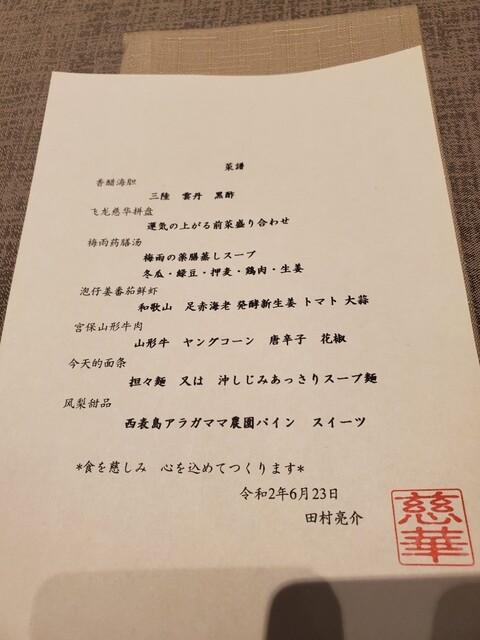 菜譜
香醋海胆
三陸 雲丹 黒酢
飞龙慈华拼盘
運気の上がる前菜盛り合わせ
梅雨药膳汤
梅雨の薬膳蒸しスープ
冬瓜・緑豆・押麦・鶏肉・生姜
泡仔姜番茄鲜虾
和歌山 足赤海老 発酵新生姜 トマト 大蒜
宫保山形牛肉
山形牛 ヤングコーン 唐辛子 花椒
今天的面条
担々麺 又は 沖しじみあっさりスープ麺
凤梨甜品
西表島アラガママ農園パイン スイーツ
*食を慈しみ 心を込めてつくります*
令和2年6月23日
田村亮介
慈華